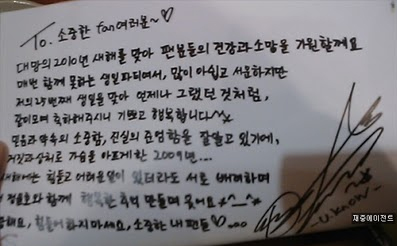 To. 소중한 fan여러분~♡
대망의 2010년 새해를 맞아 팬분들의 건강과 소망을 기원할께요
매번 함께 못하는 생일파티여서, 많이 아쉽고 서운하지만
저의 25번째 생일을 맞아 언제나 그랬던 것처럼,
같이모여 축하해주시니 기쁘고 행복합니다^^
믿음과 약속의 소중함, 진실의 존엄함을 잘알고 있기에,
거짓과상처로 가슴을 아프게한 2009년....
새해에는 힘들고 어려운일이 있더라도 서로 배려하며
정윤호와 함께 행복한 추억 만들며 웃어요 ^_^
해요, 힘들어하지마세요, 소중한 내 팬들♡....
-U.know-
재중에이전트